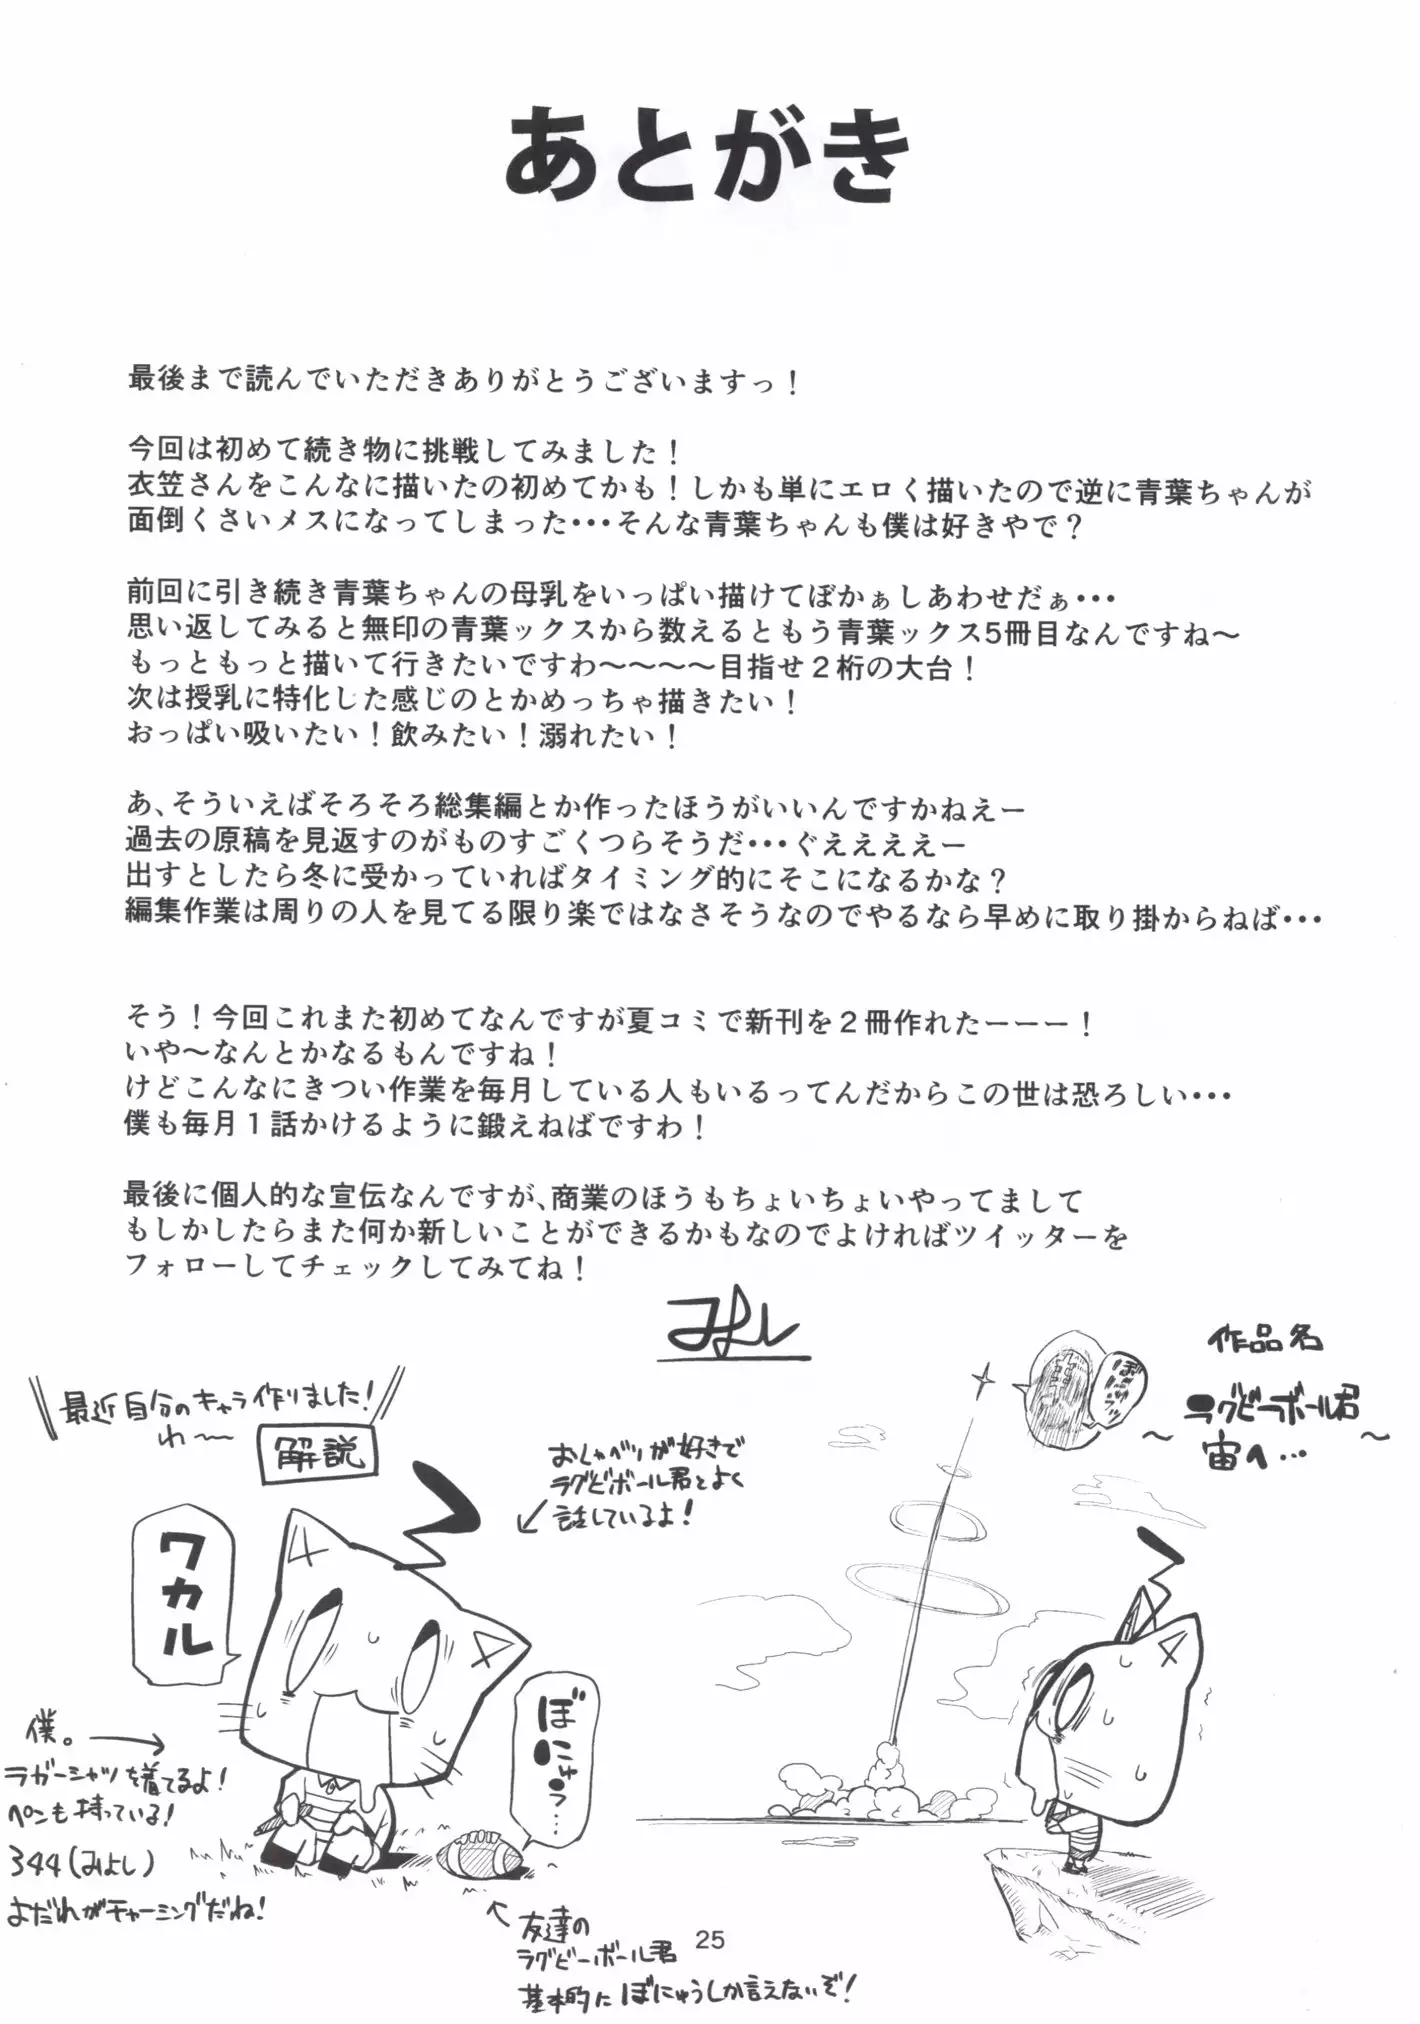 あとがき
最後まで読んでいただきありがとうございますっ！
今回は初めて続き物に挑戦してみました！
衣笠さんをこんなに描いたの初めてかも！しかも単にエロく描いたので逆に青葉ちゃんが
面倒くさいメスになってしまった･･･そんな青葉ちゃんも僕は好きやで？
前回に引き続き青葉ちゃんの母乳をいっぱい描けてぼかぁしあわせだぁ･･･
思い返してみると無印の青葉ックスから数えるともう青葉ックス5冊目なんですね～
もっともっと描いて行きたいですわ～～～～目指せ２桁の大台！
次は授乳に特化した感じのとかめっちゃ描きたい！
おっぱい吸いたい！飲みたい！溺れたい！
あ、そういえばそろそろ総集編とか作ったほうがいいんですかねえー
過去の原稿を見返すのがものすごくつらそうだ･･･ぐええええー
出すとしたら冬に受かっていればタイミング的にそこになるかな？
編集作業は周りの人を見てる限り楽ではなさそうなのでやるなら早めに取り掛からねば･･･
そう！今回これまた初めてなんですが夏コミで新刊を２冊作れたーーー！
いや～なんとかなるもんですね！
けどこんなにきつい作業を毎月している人もいるってんだからこの世は恐ろしい･･･
僕も毎月１話かけるように鍛えねばですわ！
最後に個人的な宣伝なんですが、商業のほうもちょいちょいやってまして
もしかしたらまた何か新しいことができるかもなのでよければツイッターを
フォローしてチェックしてみてね！
みよし
最近自分のキャラ作りました！
わ〜〜
解説
ワカル
おしゃべりが好きで
ラグビボール君とよく
話しているよ！
僕。
ラガーシャツを着てるよ！
ペンも持っている！
344(みよし)
よだれがチャーミングだね！
ぼ●にゅう…
友達の
ラグビーボール君
基本的にぼにゅうしか言えないぞ！
作品名
～●ラグビーボール君
宙へ…～
25